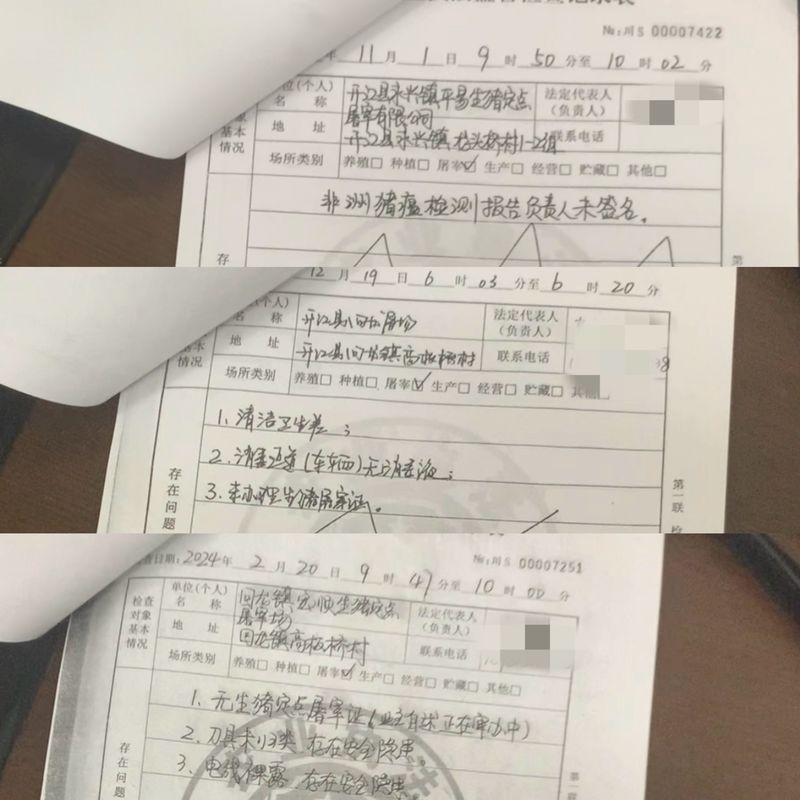 №:川S 00007422
年 11 月 1 日 9 时 50 分至 10 时 02 分
位(个人)
名 称
开江县永兴镇平易生猪定点
屠宰有限公司
法定代表人
(负责人)
基本
情况
地 址
开江县永兴镇龙头桥村1-2组
联系电话
场所类别
养殖□ 种植□ 屠宰☑ 生产□ 经营□ 贮藏□ 其他□
非洲猪瘟检测报告负责人未签名。
存
第
12 月 19 日 6 时 03 分至 6 时 20 分
(个人)
名 称
开江县回龙屠场
法定代表人
(负责人)
基本
情况
地 址
开江县回龙镇高板桥村
联系电话
场所类别
养殖□ 种植□ 屠宰☑ 生产□ 经营□ 贮藏□ 其他
1.清洁卫生差;
2.消毒通道(车辆)无消毒液;
3.未办理生猪屠宰证。
存在问题
第一联
№:川S 00007251
查日期:2024年 2 月 20 日 9 时 47 分至 10 时 00 分
检查
对象
基本
情况
单位(个人)
名 称
回龙镇宏顺生猪定点
屠宰场
法定代表人
(负责人)
地 址
回龙镇高板桥村
联系电话
场所类别
养殖□ 种植□ 屠宰☑ 生产□ 经营□ 贮藏□ 其他□
1.无生猪定点屠宰证(业主自述正在审办中)
2.刀具未归类,存在安全隐患。
3.电线裸露,存在安全隐患。
存在问
第一